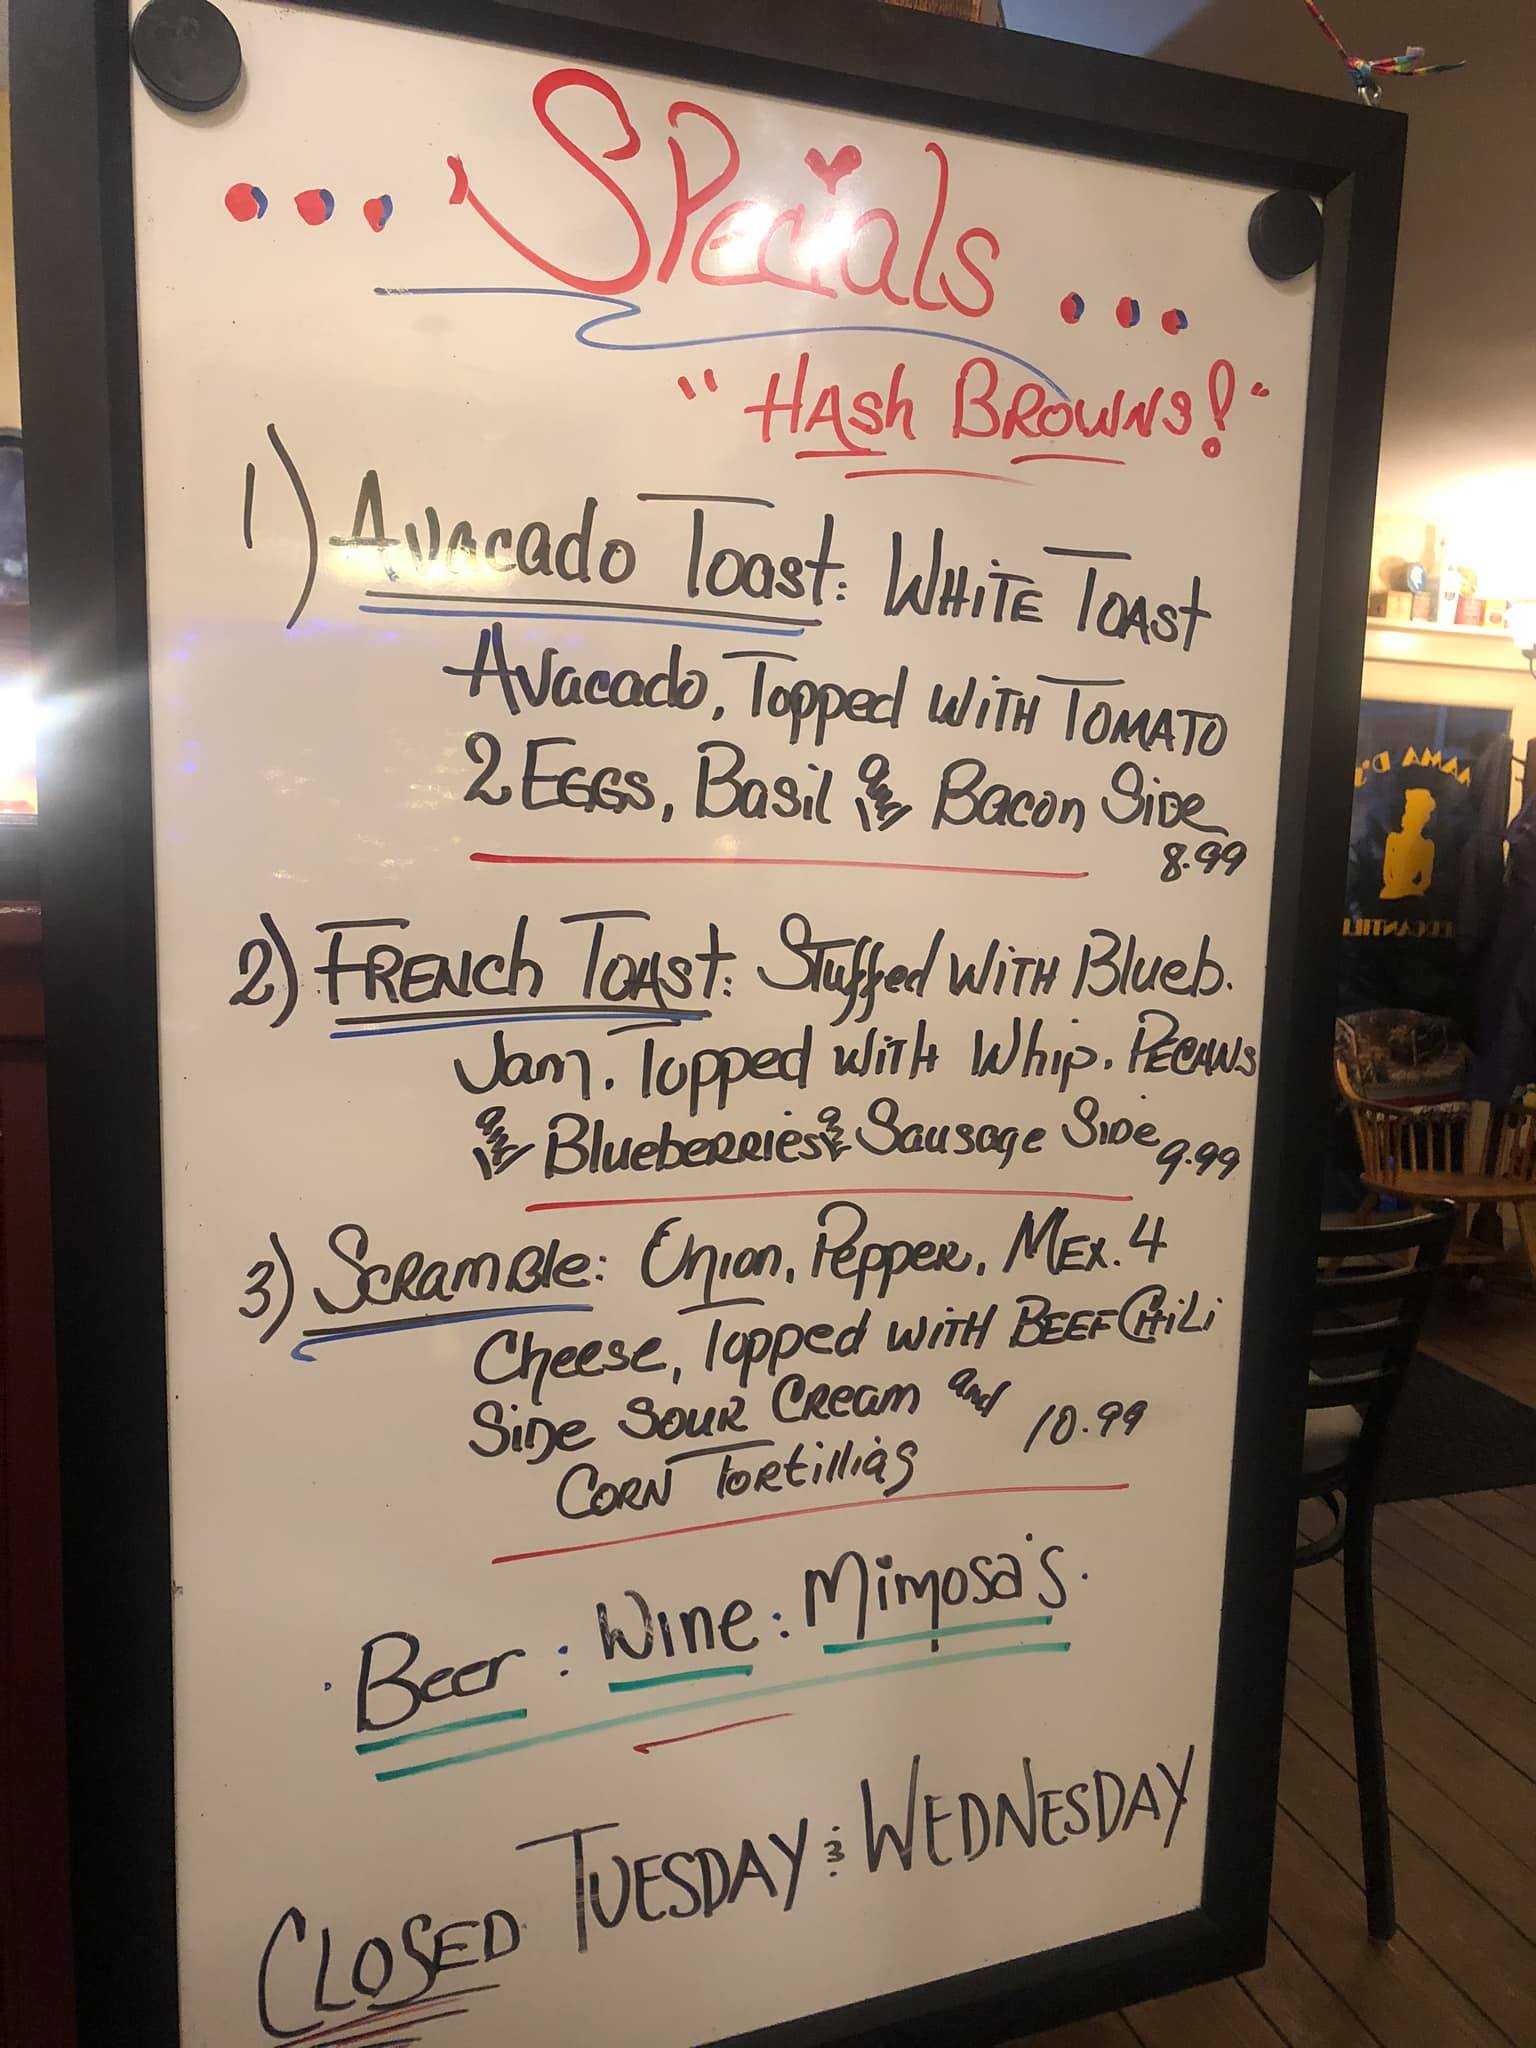 ... Specials ...
"Hash Browns!"
1) Avacado Toast: White Toast
Avacado, Topped with Tomato
2 Eggs, Basil and Bacon Side
8.99
2) French Toast: Stuffed with Blueb.
Jam. Topped with Whip. Pecans
and Blueberries & Sausage Side
9.99
3) Scramble: Onion, Pepper, Mex. 4
Cheese, Topped with Beef Chili
Side Sour Cream and
Corn Tortillias
10.99
Beer : Wine : Mimosa's.
Closed Tuesday & Wednesday
MAMA D'S
MERCANTILE